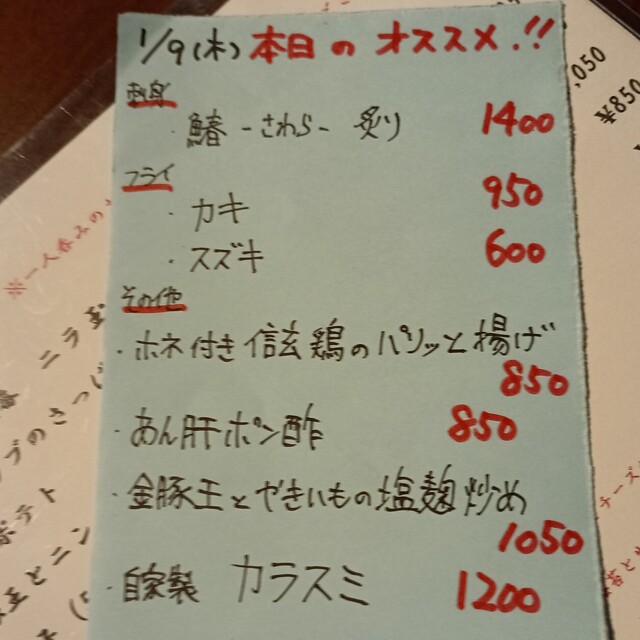 1/9(木) 本日のオススメ!!
刺身
・鰆 -さわら- 炙り 1400
フライ
・カキ 950
・スズキ 600
その他
・ホネ付き信玄鶏のパリッと揚げ
850
・あん肝ポン酢 850
・金豚王とやきいもの塩麹炒め
1050
・自家製 カラスミ 1200
,050
¥850
※一人呑みの
ニラ玉
チーズ